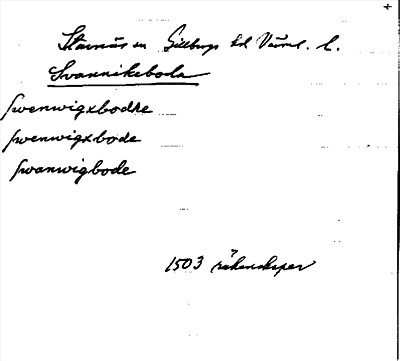 Stavnäs sn Gillbergs hd Värml. l.
Svannikeboda
swenwigxbodhe
swenwigxbode
swanwigbode
1503 räkenskaper